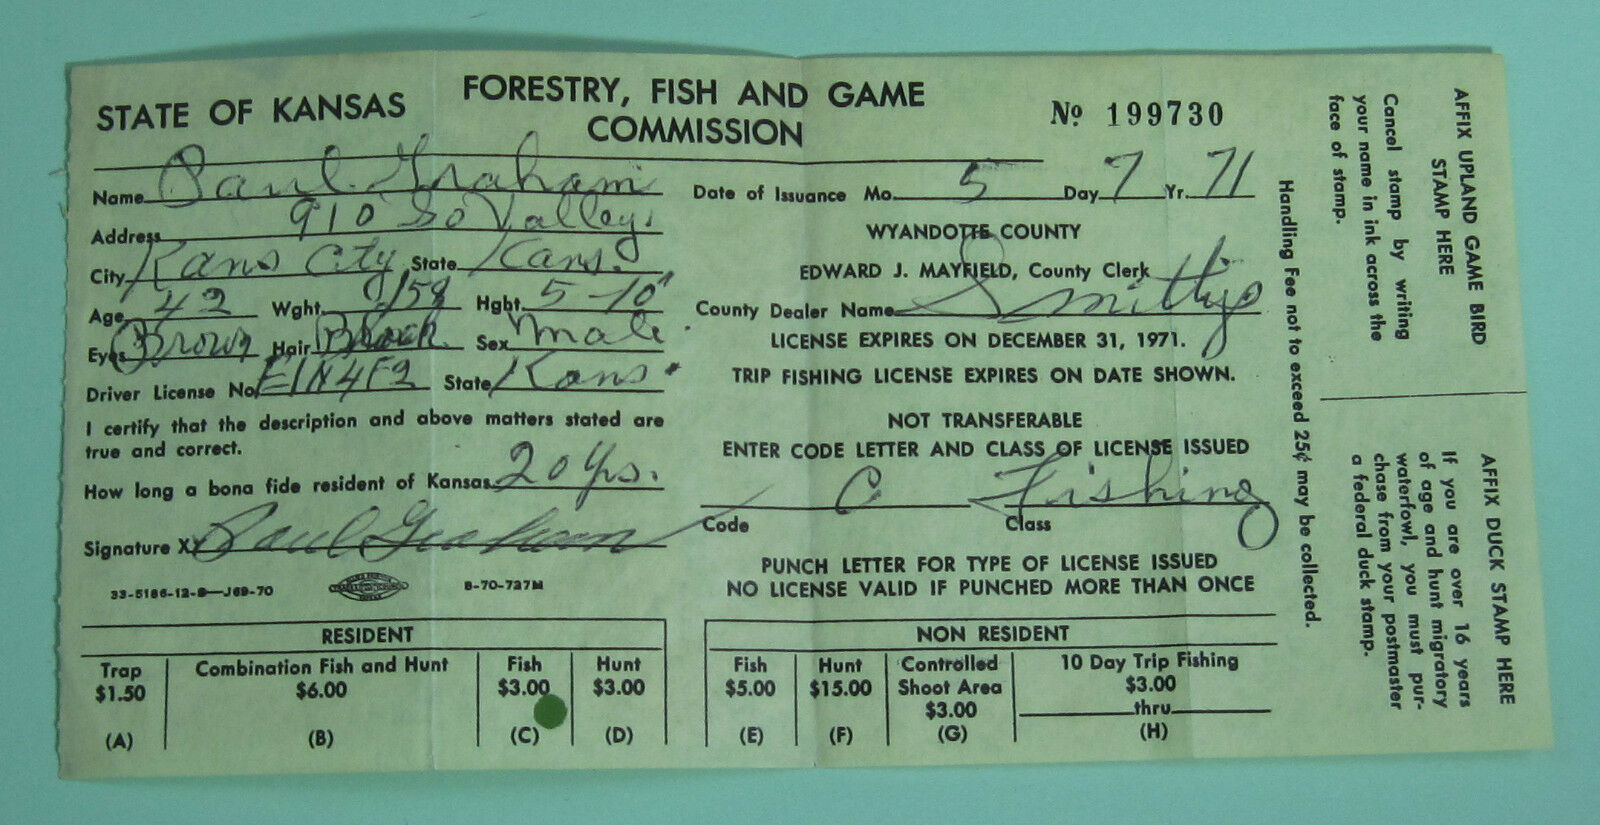 STATE OF KANSAS
FORESTRY, FISH AND GAME
COMMISSION
Nº 199730
Name Paul Graham
Address 910 So Valley.
City Kans City State Kans.
Age 42 Wght. 158 Hght. 5-10"
Eyes Brown Hair Black Sex Male
Driver License No. E1N4F2 State Kans.
I certify that the description and above matters stated are
true and correct.
How long a bona fide resident of Kansas 20 yrs.
Signature X Paul Graham
33-5186-12-S—J69-70
8-70-727M
Date of Issuance Mo. 5 Day 7 Yr. 71
WYANDOTTE COUNTY
EDWARD J. MAYFIELD, County Clerk
County Dealer Name Smittys
LICENSE EXPIRES ON DECEMBER 31, 1971.
TRIP FISHING LICENSE EXPIRES ON DATE SHOWN.
NOT TRANSFERABLE
ENTER CODE LETTER AND CLASS OF LICENSE ISSUED
C Fishing
Code Class
PUNCH LETTER FOR TYPE OF LICENSE ISSUED
NO LICENSE VALID IF PUNCHED MORE THAN ONCE
RESIDENT
Trap
$1.50
(A)
Combination Fish and Hunt
$6.00
(B)
Fish
$3.00
(C)
Hunt
$3.00
(D)
NON RESIDENT
Fish
$5.00
(E)
Hunt
$15.00
(F)
Controlled
Shoot Area
$3.00
(G)
10 Day Trip Fishing
$3.00
thru
(H)
Handling Fee not to exceed 25¢ may be collected.
AFFIX UPLAND GAME BIRD
STAMP HERE
Cancel stamp by writing
your name in ink across the
face of stamp.
AFFIX DUCK STAMP HERE
If you are over 16 years
of age and hunt migratory
waterfowl, you must pur-
chase from your postmaster
a federal duck stamp.